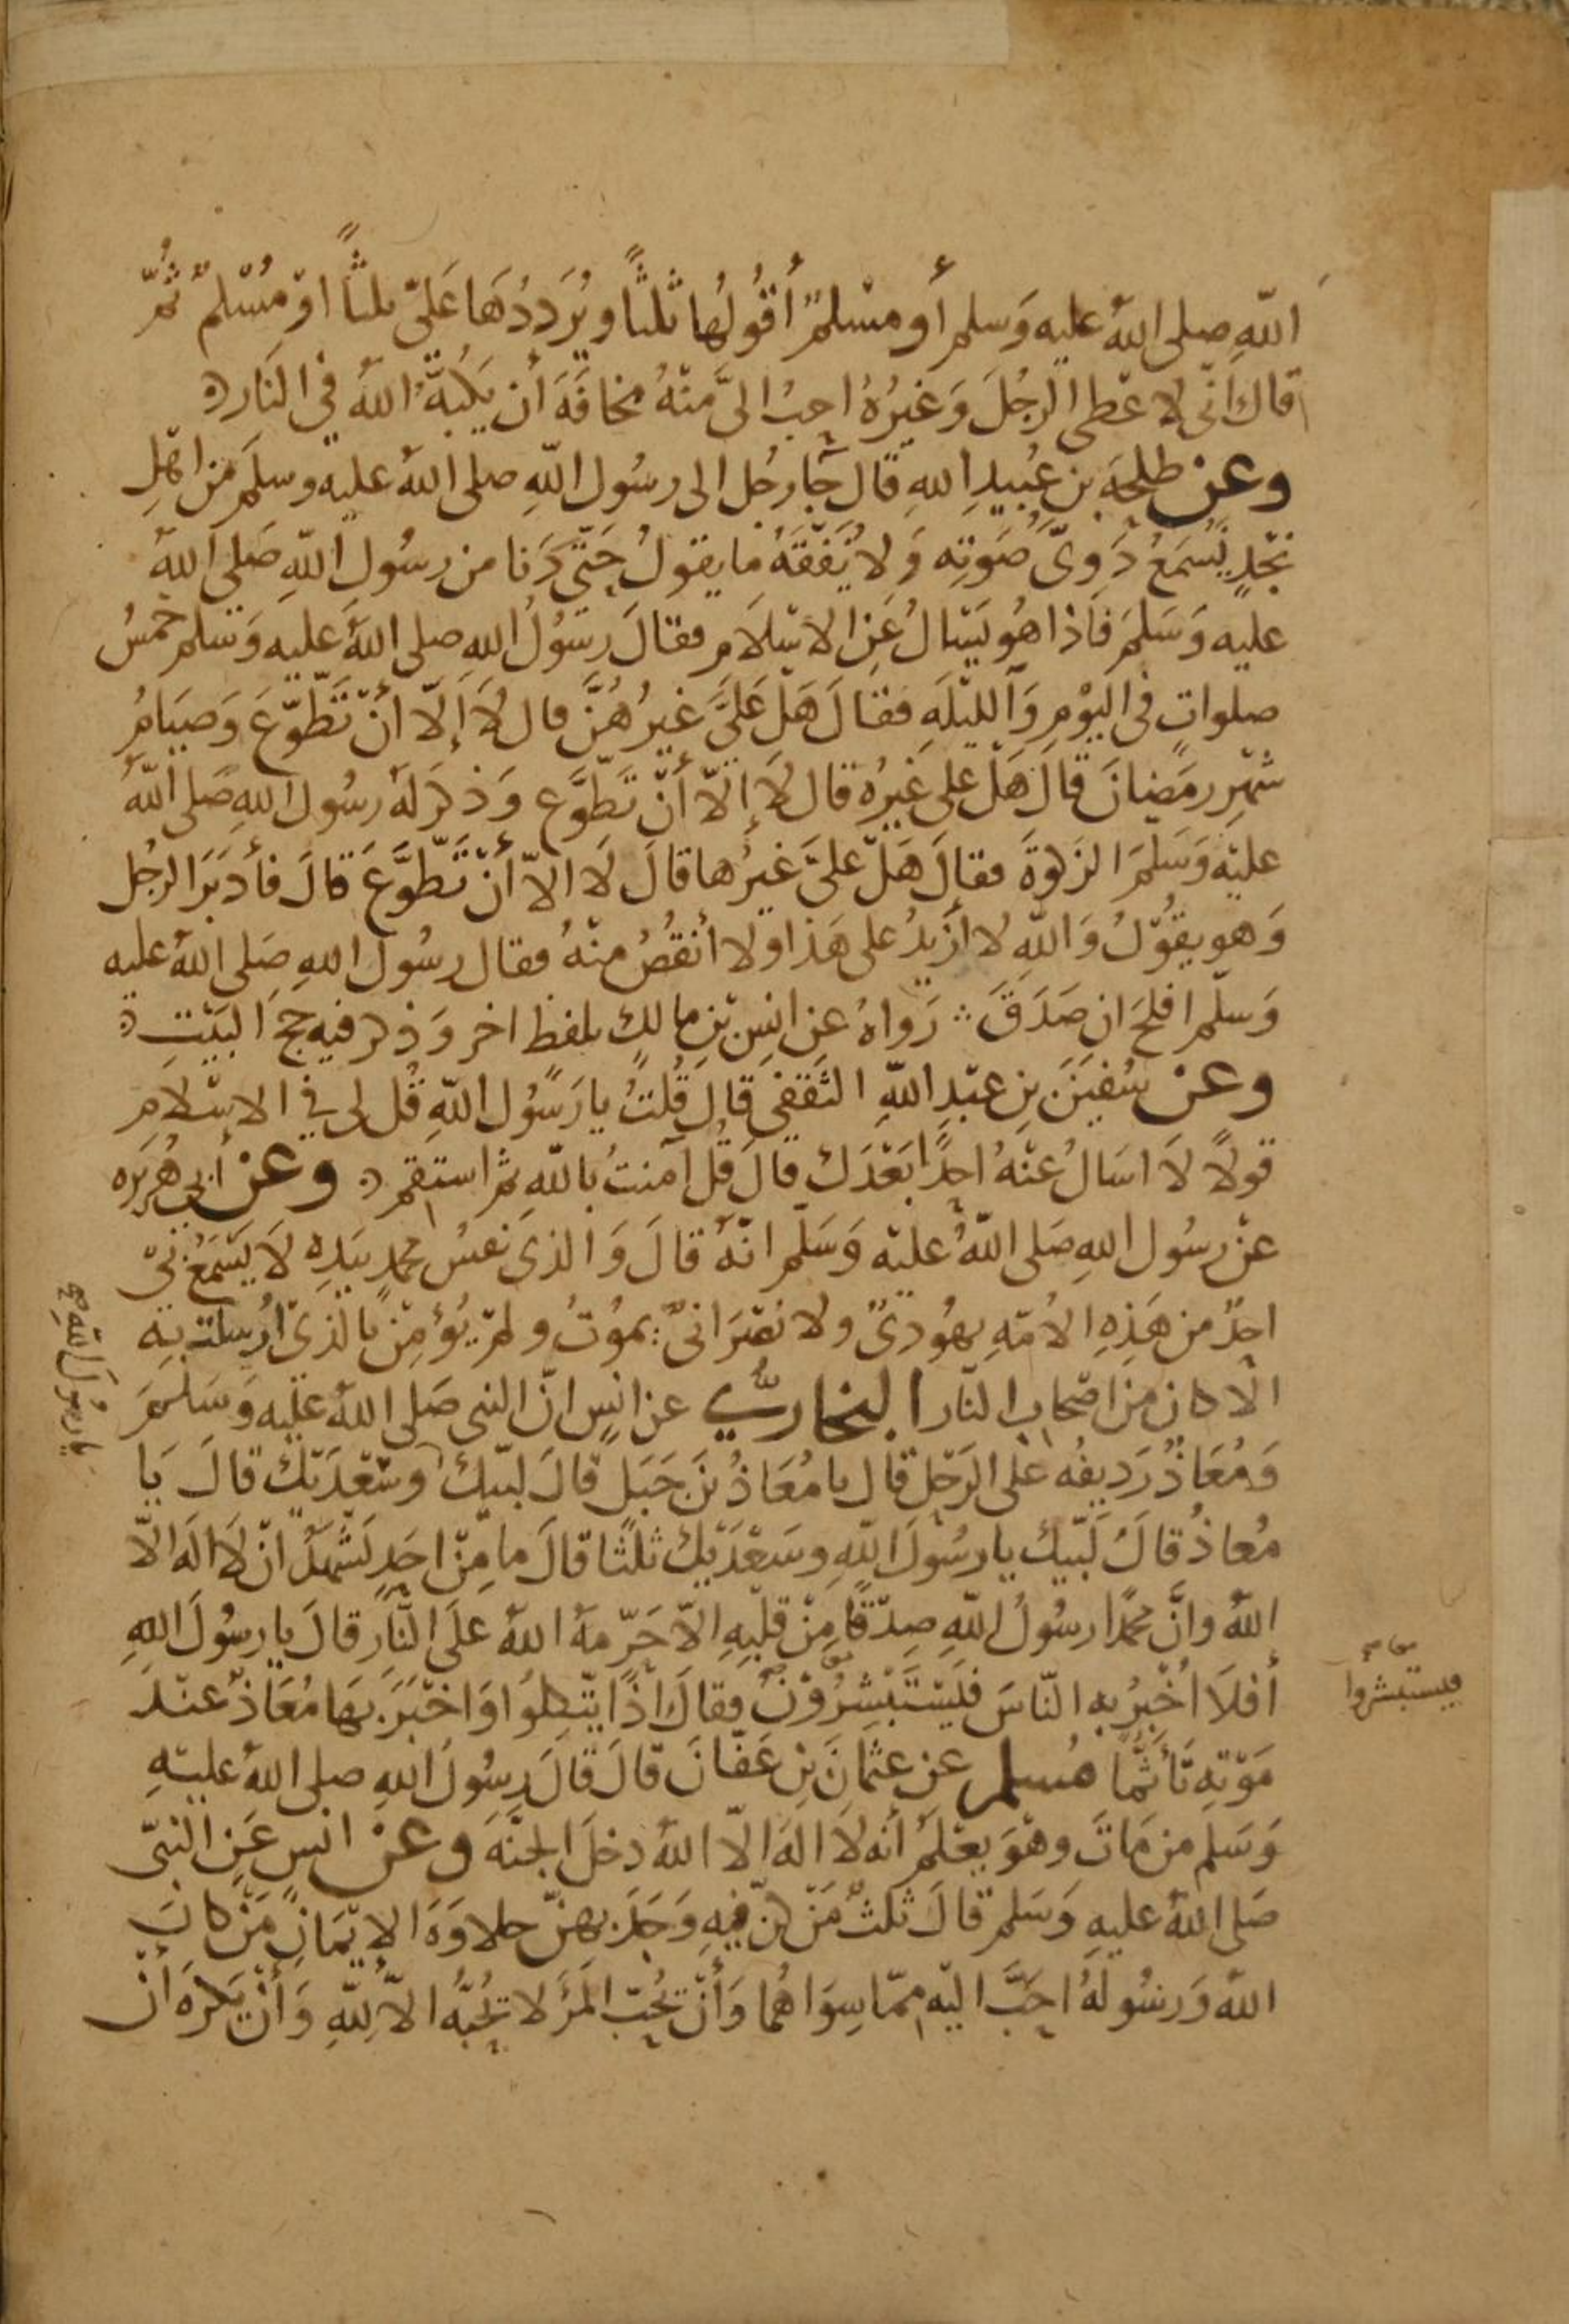 اللهِ صلى اللهُ عليه وَسلم أو مسْلمٌ أقُولُهَا ثلثاً ويُرَدِدُهَا عَلىّ ثلثاً اوْ مُسْلمٌ ثُمَّ
قال انّى لاعْطى الرجُلَ وَغيرُهُ احبُ الىَّ منْهُ مخافَةَ أن يَكُبَّهُ اللهُ في النَار
وعنْ طلحةَ بن عُبيدِ اللهِ قال جآ رجُل الى رسُول اللهِ صلى اللهُ عليه وسلمَ من اهْلِ
نَجْدٍ نَسْمَعُ دَوِىَّ صَوتِه وَلا نَفْقَهُ ما يقولُ حَتّى دَنا من رسُولِ اللهِ صَلى اللهُ
عليه وَسَلمَ فَاذا هُو يَسْالُ عَنِ الاسْلام فقالَ رسُولُ الله صلى اللهُ عليه وَسلم خمسُ
صلواتٍ فى اليَوْمِ وَالليْلَةِ فقالَ هَلْ عَلىَّ غيرُهُنَّ قال لَا إلّا أنْ تَطّوّعَ وَصيَامُ
شهْرِ رمَضانَ قالَ هَلْ على غيرُه قال لَا إلّا أنْ تَطَّوَّع وَذكرَ لَهُ رسُول اللهِ صَلى اللهُ
عليْه وَسَلمَ الزكوةَ فقالَ هَلْ علىَّ غيرُها قالَ لَا الّا أنْ تَطَّوَّعَ قالَ فأدبَرَ الرجُل
وَهو يقُوْلُ وَاللهِ لا أزيدُ على هَذا ولا أنقُصُ منْهُ فقال رسُول اللهِ صَلى اللهُ عليه
وَسلّم افلحَ ان صَدَقَ ∴ رَواهُ عن انسِ بْنِ مالكٍ بلفظ اخر وَذكر فيه حجَ البَيْتِ
وعنْ سُفيَنَ بنِ عبْدِ اللهِ الثَقفى قالَ قُلتُ يا رَسُول اللهِ قُل لى في الاسْلامِ
قولاً لَا اسَالُ عنْهُ احدًا بَعْدَك قالَ قُل آمنتُ باللهِ ثم استقم وعنْ أبى هُريَره
عنْ رسُول اللهِ صَلى اللهُ عليْه وَسَلّم انّهُ قالَ وَالذى نَفسُ محمد بيَدِه لَا يَسْمَعُ بىْ
احدٌ من هَذِهِ الأمّهِ يهُودىٌ ولا نَصْرَانىٌ يموُتُ ولمْ يُؤمِنْ بالذىْ أرْسلتُ بِه
الّا كان من اصْحاب النّار البخارىُّ عن انسٍ انّ النبى صَلى اللهُ عليْه وَسَلمَ
يا رسُولَ اللهِ صح
وَمُعَاذٌ رَديفُه على الرَحْلِ قال يا مُعَاذُ بْنَ جَبَلٍ قالَ لبّيكَ وسَعْدَيْكَ قالَ يَا
مُعاذُ قالَ لَبّيك يا رسُوْلَ اللهِ وسَعْدَيْك ثلثًا قالَ ما مِنْ احَدٍ يَشْهَدُ انْ لَا الَه الّا
اللهُ وانَّ محمّدًا رسُولُ اللهِ صِدْقًا مِنْ قلْبِهِ الاّ حَرّمهُ اللهُ علَى النّار قالَ يا رسُولَ اللهِ
أفلَا اُخْبِرُ به النّاسَ فيَسْتَبْشِرُوْنَ فقالَ اذًا يتّكِلوُا وَاخْبَرَ بهَا مُعَاذٌ عنْدَ
فيستبشروا
مَوْتهِ تأثُّمًا مُسلم عن عثمانَ بْنِ عَفّانَ قالَ قالَ رسُولُ اللهِ صلى اللهُ عليْهِ
وَسَلم من مَاتَ وهْوَ يعْلمُ أنه لَا الهَ الّا اللهُ دخلَ الجنّهَ وعنْ انس عَنِ النبّى
صَلى اللهُ عليهِ وَسَلم قالَ ثلثٌ مَنْ كنّ فيهِ وَجَدَ بهنّ حلاوَةَ الايْمَانِ مَنْ كانَ
اللهُ وَرسُولُهُ احَبَّ اليْه ممّا سِوَاهُما وَأنْ يُحبّ المرْءَ لا يُحبُّهُ الاّ لِلّهِ وَأنْ يَكرَهَ أنْ